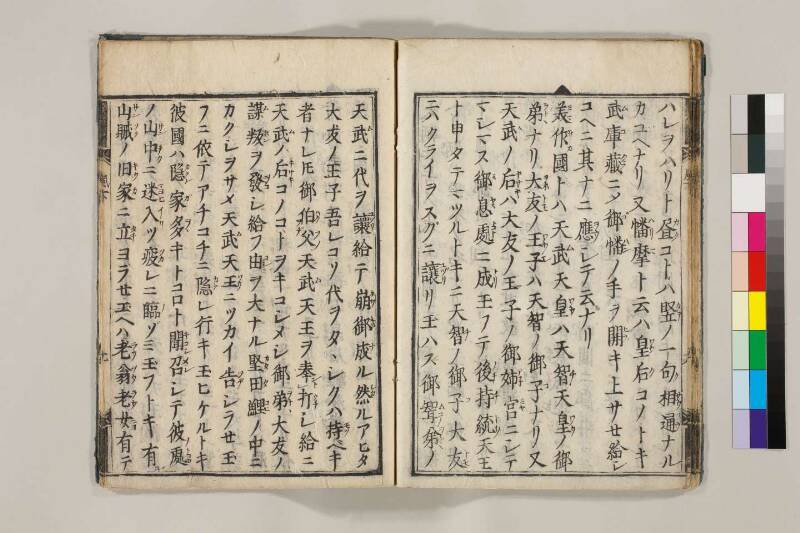 ハレヲハリト昼コトハ竪ノ一句相通ナル
カユヘナリ又幡摩ト云ハ皇后コノトキ
武庫蔵ニタ御幡ノ手ヲ開キ上サせ給レ
コヘニ其ナニ應シテ云ナリ
美作國トハ天武天皇ハ天智天皇ノ御
弟ナリ大友ノ王子ハ天智ノ御子ナリ又
天武ノ后ハ大友ノ王子ノ御姉宮ニシテ
マシマス御息處ニ成玉フテ後持統天王
ト申タテマツルトキニ天智ノ御子大友
ニハクライヲスグニ讓リ玉ハス御聟ノ
天武ニ代ヲ讓給テ崩御成ル然ルアヒタ
大友ノ王子吾レコソ代ヲタヽシクハ持ヘキ
者ナレ𪜈御伯父天武天王ヲ奉打シ給ニ
天武ノ后コノコトヲキコシメシ御弟大友ノ
謀叛ヲ發シ給フ由ヲ大ナル堅田鯉ノ中ニ
カクシヲサメ天武天王ニツカイ告シラせ玉
フニ依テアチコチニ隠レ行キ玉ヒケルトキ
彼國ハ隠家多キトコロト聞召シテ彼處
ノ山中ニ迷入ツ疲レニ臨ソミ玉フトキ有
山賊ノ旧家ニ立ヨラせ玉ヘハ老翁老女有テ